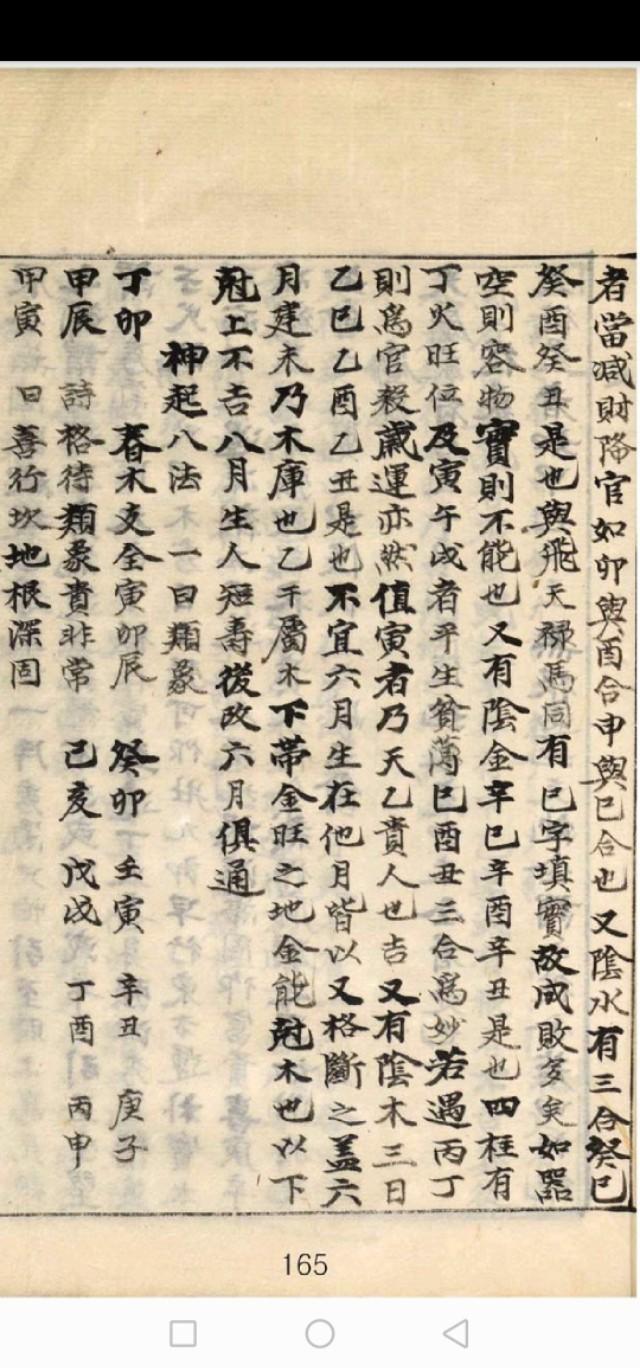 者當减財降官如卯與酉合申與巳合也又陰水有三合癸巳
癸酉癸丑是也與飛天祿馬同有巳字填實故成敗多矣如器
空則容物實則不能也又有陰金辛巳辛酉辛丑是也四柱有
丁火旺位及寅午戌者平生貧薄巳酉丑三合爲妙若遇丙丁
則爲官殺歲運亦然值寅者乃天乙貴人也吉又有陰木三日
乙巳乙酉乙丑是也不宜六月生在他月皆以又格斷之盖六
月建未乃木庫也乙干屬木下帶金旺之地金能尅木也以下
尅上不吉八月生人短壽後改六月俱通
神起八法 一曰類象
丁卯 春木支全寅卯辰 癸卯 壬寅 辛丑 庚子
甲辰 詩格待類象貴非常 己亥 戊戌 丁酉 丙申
甲寅 曰善行坎地根深固
165